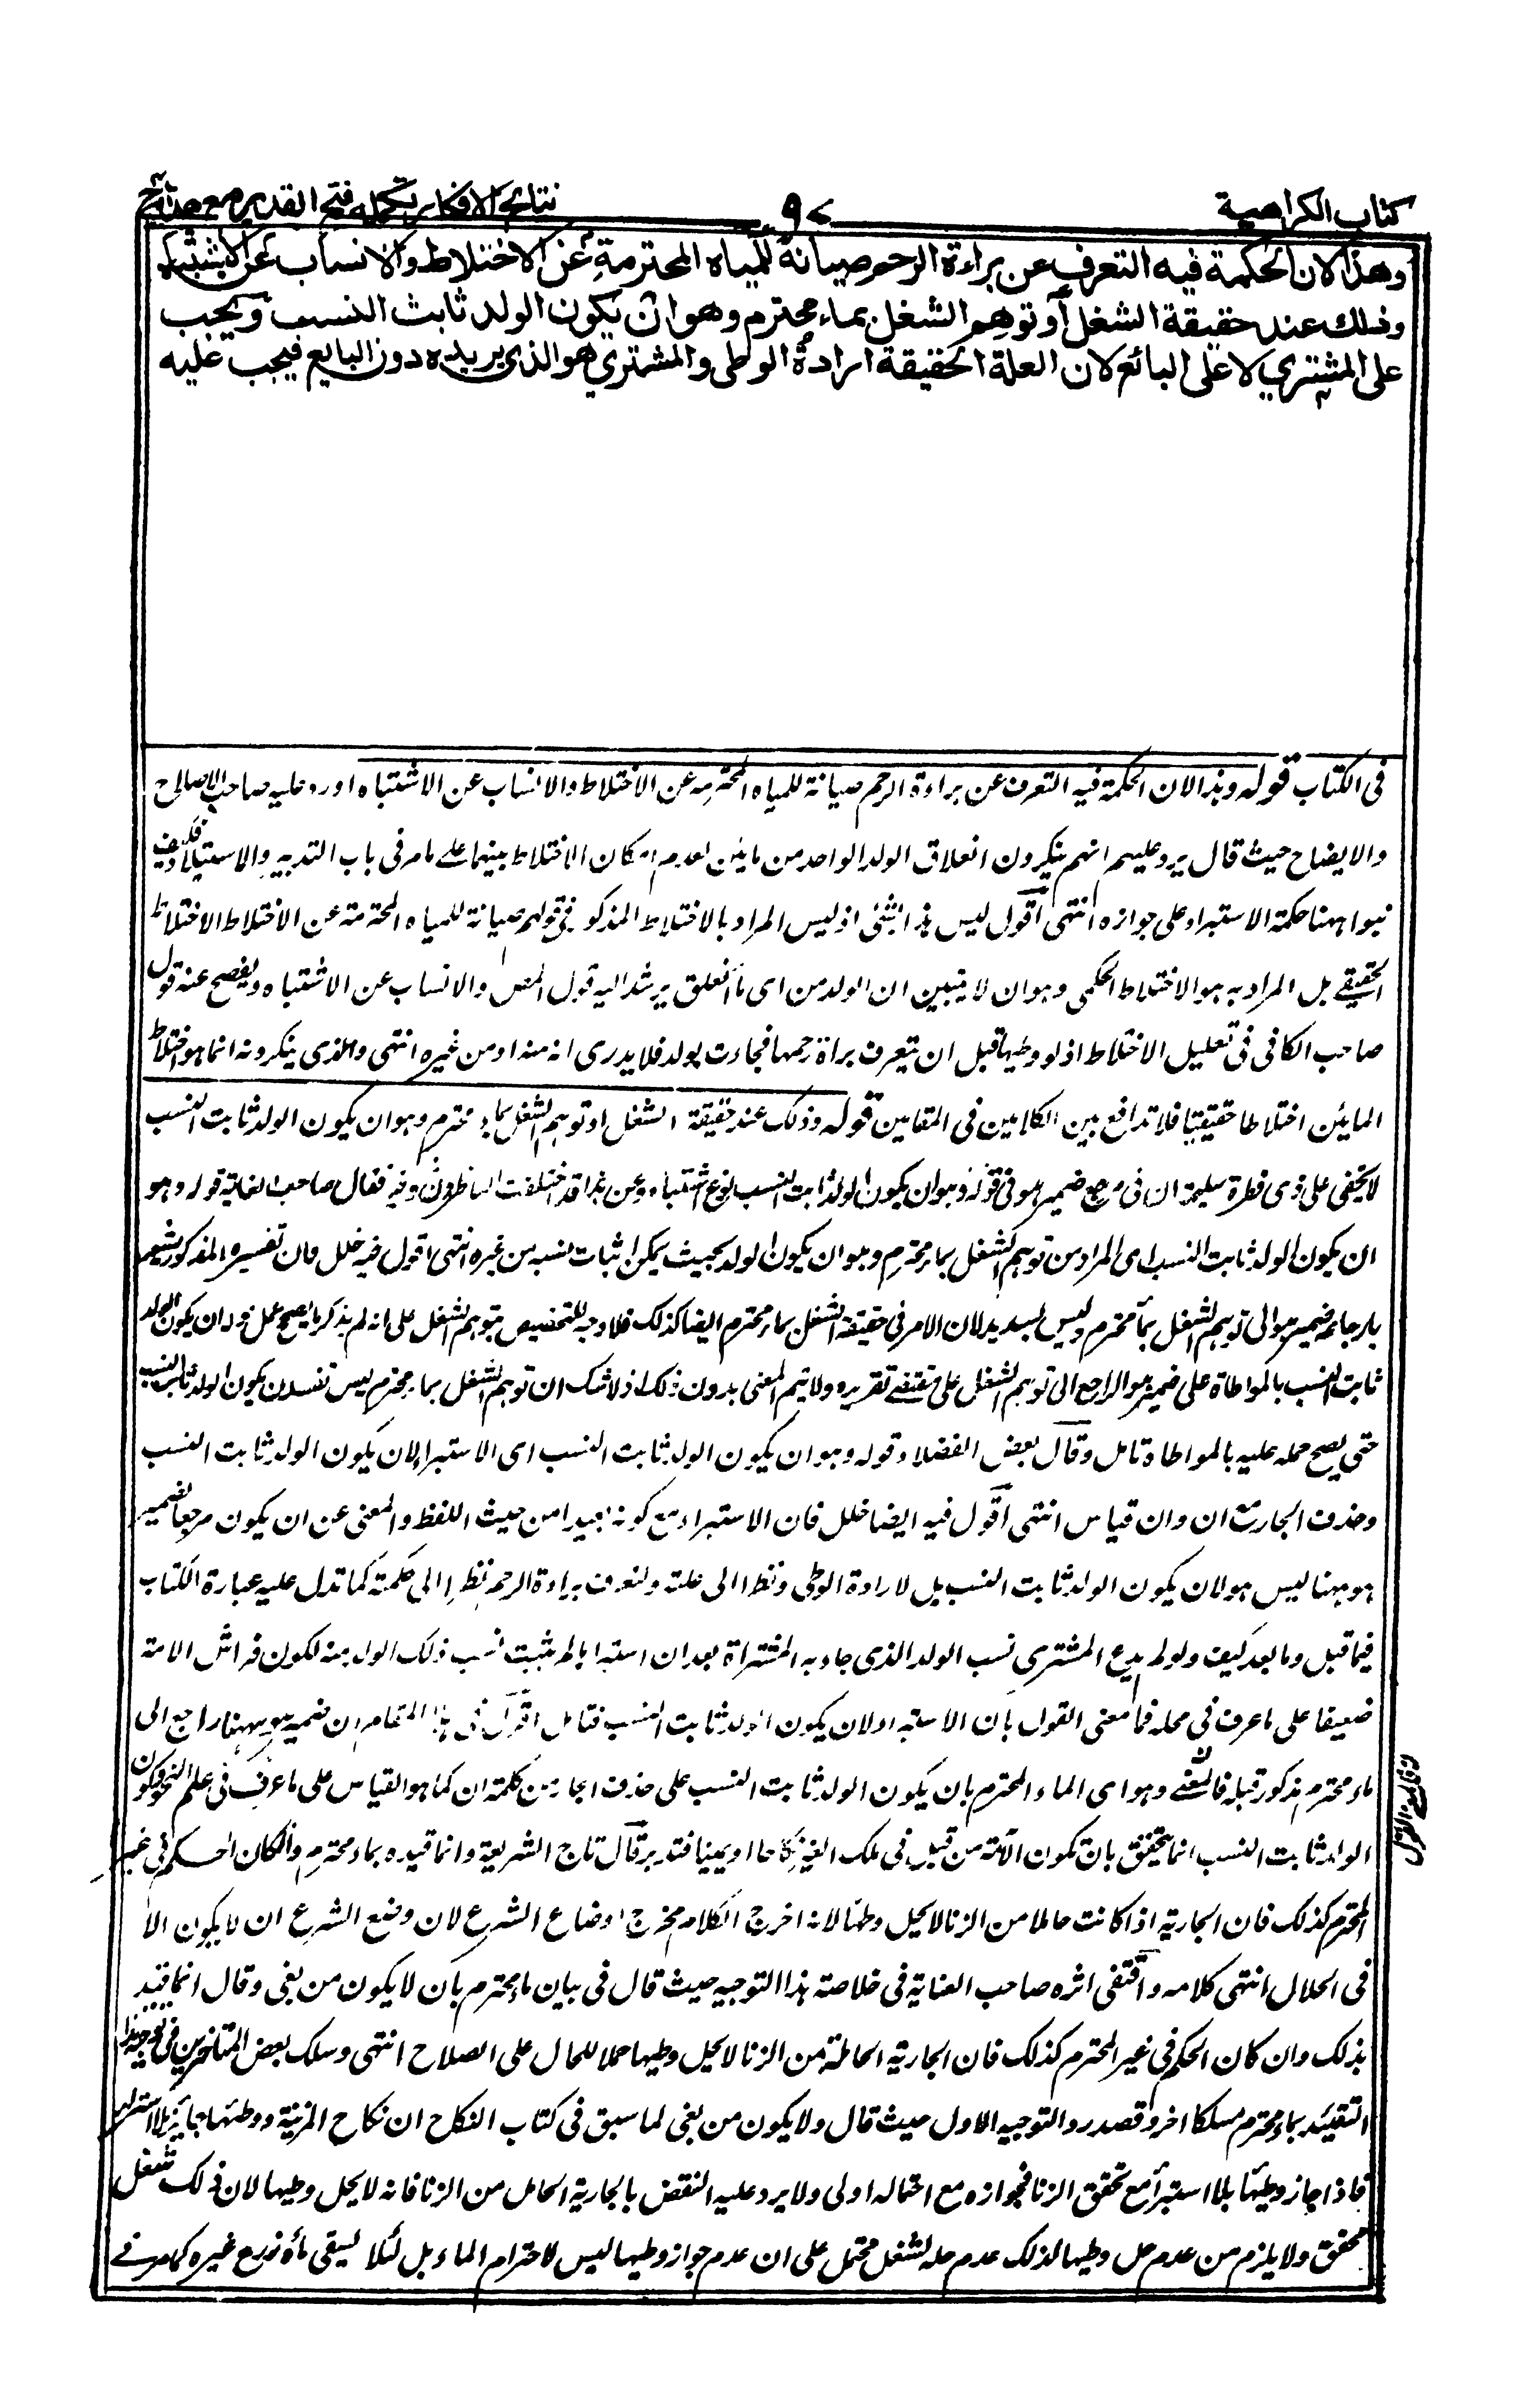 كتاب الكراهية
٩٧
نتائج الافكار تكملة فتح القدير مع هداية ج
وهذا لان الحكمة فيه التعرف عن براءة الرحم صيانة للمياه المحترمة عن الاختلاط والانساب عن الاشتباه
وذلك عند حقيقة الشغل أو توهم الشغل بماء محترم وهو ان يكون الولد ثابت النسب ويجب
على المشتري لا على البائع لان العلة الحقيقة ارادة الوطى والمشتري هو الذي يريده دون البايع فيجب عليه
فى الكتاب قوله وهذا لان الحكمة فيه التعرف عن براءة الرحم صيانة للمياه المحترمه عن الاختلاط والانساب عن الاشتباه اورد عليه صاحب الاصلاح
والايضاح حيث قال يرد عليهم انهم ينكرون انعلاق الولد الواحد من مائين لعدم امكان الاختلاط بينهما على ما مر فى باب التدبير والاستيلاد فكيف
نبوا ههنا حكمة الاستبراء على جوازه انتهى اقول ليس هذا بشئ اذ ليس المراد بالاختلاط المذكور فى قولهم صيانة للمياه المحترمة عن الاختلاط الاختلاط
الحقيقے بل المراد به هو الاختلاط الحكمى وهو ان لا يتبين ان الولد من اى ماء انعلق يرشد اليه قول المص والانساب عن الاشتباه ويفصح عنه قول
صاحب الكافى فى تعليل الاختلاط اذ لو وطيها قبل ان يتعرف براة رحمها فجاءت بولد فلا يدرى انه منه او من غيره انتهى والذى ينكرونه انما هو اختلاط
المائين اختلاطا حقيقيا فلا تدافع بين الكلامين فى المقامين قوله وذلك عند حقيقة الشغل او توهم الشغل بماء محترم وهو ان يكون الولد ثابت النسب
لا يخفى على ذى فطرة سليمة ان فى مرجع ضمير هو فى قوله وهو ان يكون الولد ثابت النسب نوع اشتباه وعن هذا قد اختلفت الناظرون فيه فقال صاحب الغاية قوله وهو
ان يكون الولد ثابت النسب اى المراد من توهم الشغل بماء محترم وهو ان يكون الولد بحيث يمكن اثبات نسبه من غيره انتهى اقول فيه خلل فان تفسيره المذكور يشعر
بارجاعه ضمير هو الى توهم الشغل بماء محترم وليس بسديد لان الامر فى حقيقة الشغل بماء محترم ايضا كذلك فلا وجه للتخصيص بتوهم الشغل على انه لم يذكر ما يصح حمل ان يكون الولد
ثابت النسب بالمواطاة على ضمير هو الراجع الى توهم الشغل على مقتضے تقريره ولا يتم المعنى بدون ذلك اذ لا شك ان توهم الشغل بماء محترم ليس نفس ان يكون الولد ثابت النسب
حتى يصح حمله عليه بالمواطاة تامل وقال بعض الفضلاء قوله وهو ان يكون الولد ثابت النسب اى الاستبراء لان يكون الولد ثابت النسب
وحذف الجار مع ان وان قياس انتهى اقول فيه ايضا خلل فان الاستبراء مع كونه بعيدا من حيث اللفظ والمعنى عن ان يكون مرجعا لضمير
هو ههنا ليس هو لان يكون الولد ثابت النسب بل لارادة الوطى ونظرا الى علته ولتعرف براءة الرحم نظرا الى حكمته كما تدل عليه عبارة الكتاب
فيما قبل وما بعد كيف ولو لم يدع المشترى نسب الولد الذى جاءت به المشتراة بعد ان استبراها لم يثبت نسب ذلك الولد منه لكون فراش الامة
ضعيفا على ما عرف فى محله فما معنى القول بان الاستبراء لان يكون الولد ثابت النسب فتامل اقول فى هذا المقام ان ضمير هو ههنا راجع الى
ماء محترم مذكور قبله فالمعنے وهو اى الماء المحترم بان يكون الولد ثابت النسب على حذف الجار من كلمة ان كما هو القياس على ما عرف فى علم النحو وكون
الولد ثابت النسب انما يتحقق بان تكون الامة من قبل فى ملك الغير نكاحا او يمينا فتدبر قال تاج الشريعة وانما قيده بماء محترم وان كان الحكم فى غير
المحترم كذلك فان الجارية اذا كانت حاملا من الزنا لا يحل وطئها لانه اخرج الكلام مخرج اوضاع الشرع لان وضع الشرع ان لا يكون الا
فى الحلال انتهى كلامه واقتفى اثره صاحب العناية فى خلاصة هذا التوجيه حيث قال فى بيان ماء محترم بان لا يكون من بغى وقال انما قيد
بذلك وان كان الحكم فى غير المحترم كذلك فان الجارية الحاملة من الزنا لا يحل وطيها حملا للحال على الصلاح انتهى وسلك بعض المتاخرين فى توجيه هذا
التقييد بماء محترم مسلكا اخر وقصد رد التوجيه الاول حيث قال ولا يكون من بغى لما سبق فى كتاب النكاح ان نكاح المزنية ووطئها جائز بلا استبراء
فاذا جاز وطيها بلا استبراء مع تحقق الزنا فجوازه مع احتماله اولى ولا يرد عليه النقض بالجارية الحامل من الزنا فانه لا يحل وطيها لان ذلك شغل
محقق ولا يلزم من عدم حل وطيها لذلك عدم حله لشغل محتمل على ان عدم جواز وطيها ليس لاحترام الماء بل لئلا يسقى ماءه زرع غيره كما مر فے